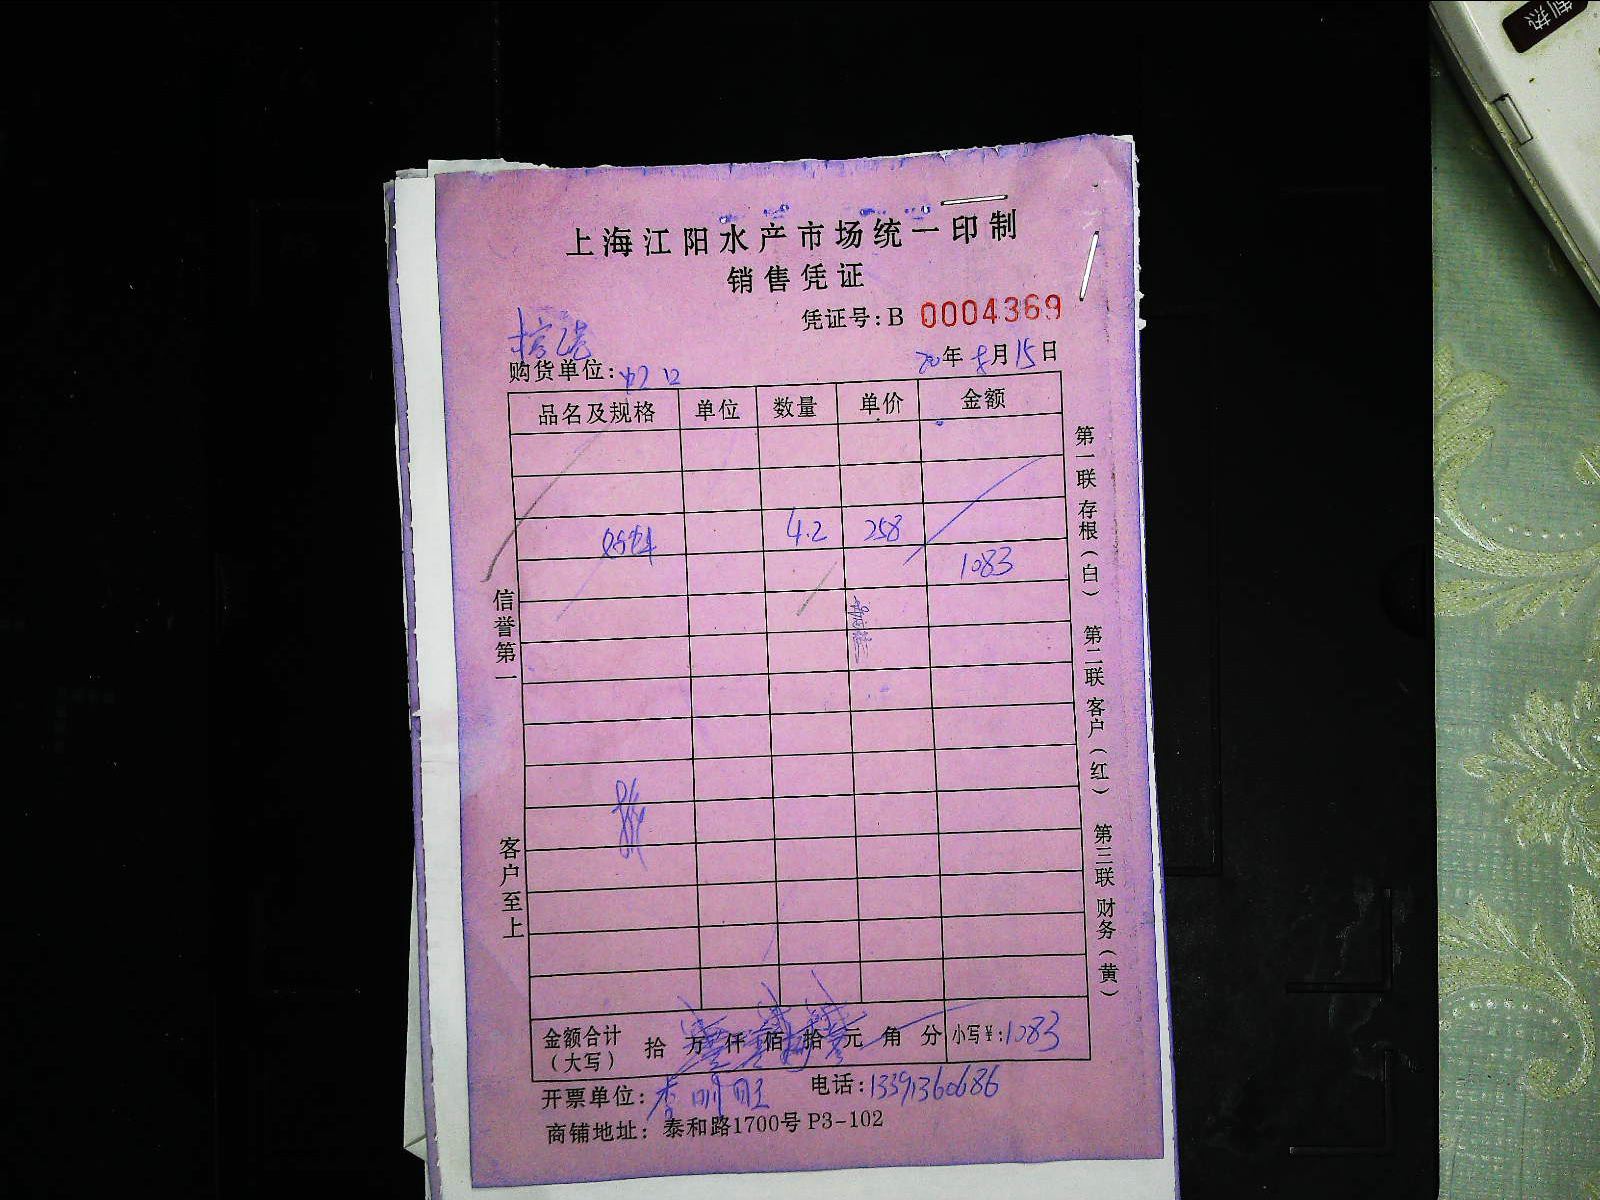 制热
上海江阳水产市场统一印制
销售凭证
凭证号:B 0004369
购货单位:
20年8月15日
品名及规格 单位 数量 单价 金额
4.2 258
1083
信誉第一
客户至上
第一联 存根(白) 第二联 客户(红) 第三联 财务(黄)
金额合计(大写) 拾 万 仟 佰 拾 元 角 分 小写¥:1083
开票单位:李明旺 电话:13391360686
商铺地址: 泰和路1700号 P3-102